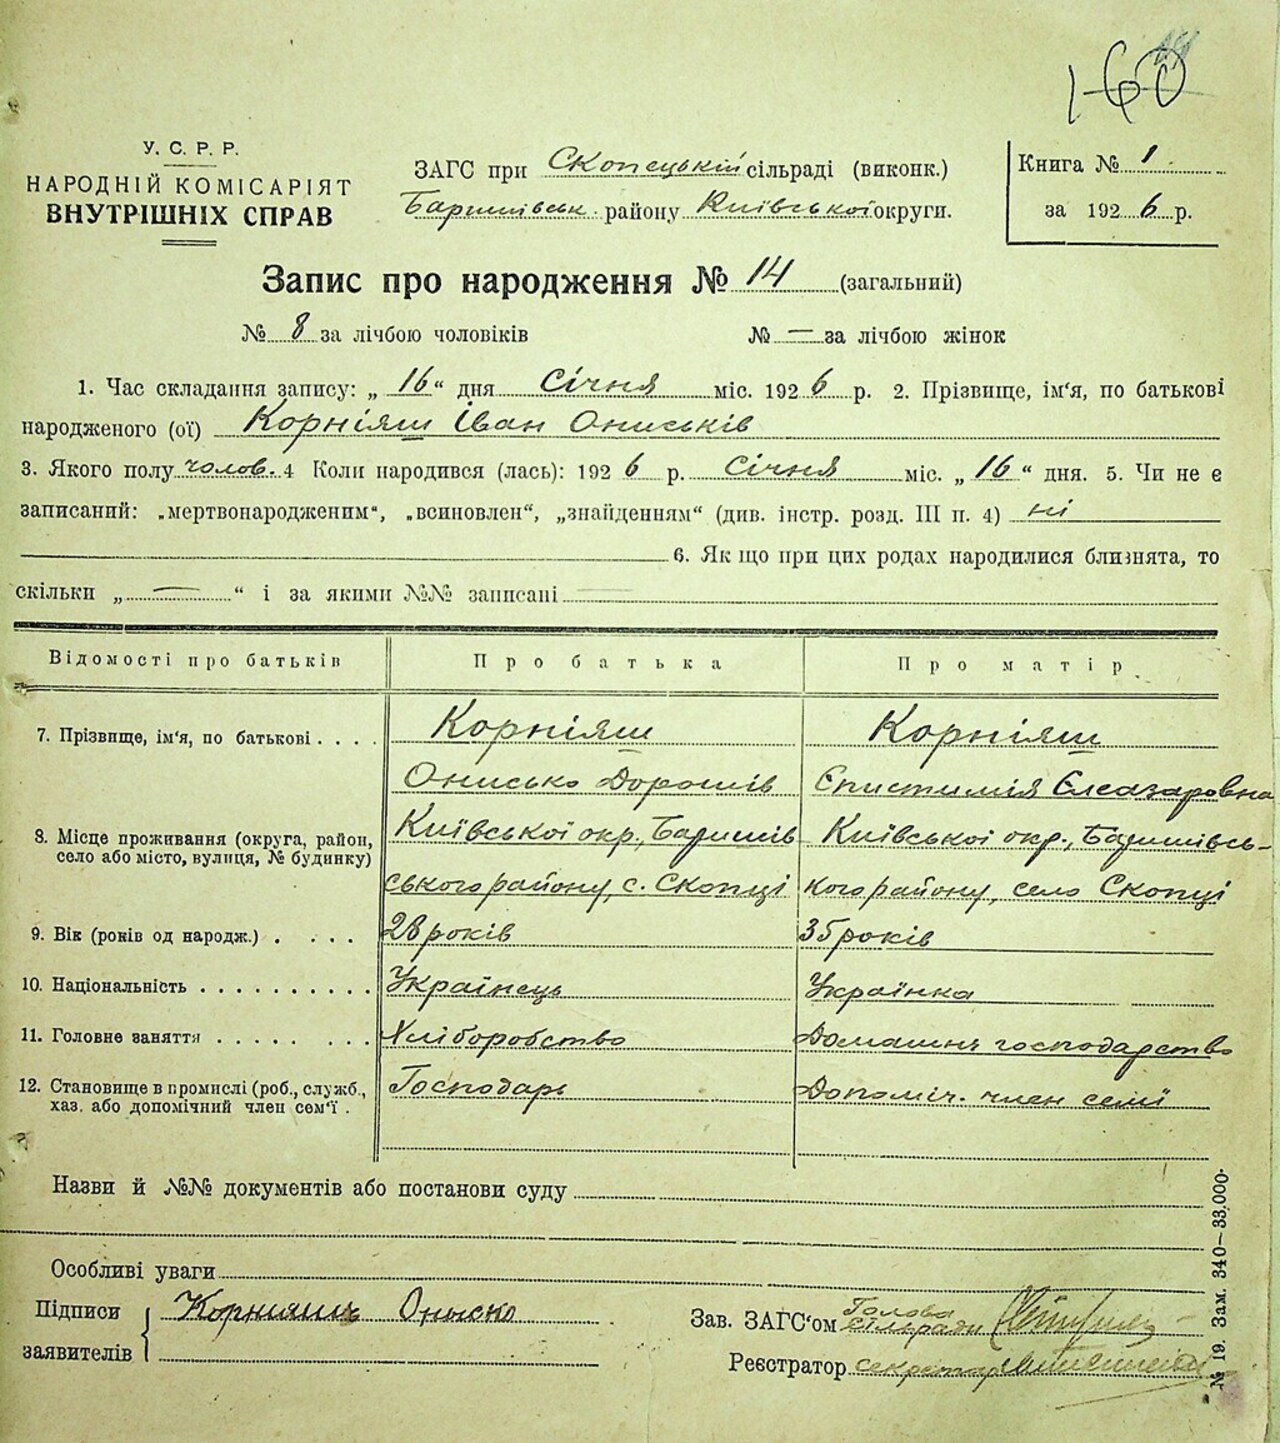 160
У. С. Р. Р.
НАРОДНІЙ КОМІСАРІЯТ
ВНУТРІШНІХ СПРАВ
ЗАГС при Скопецькій сільраді (виконк.)
Баришівськ. району Київської округи.
Книга № 1
за 1926 р.
Запис про народження № 14 (загальний)
№ 8 за лічбою чоловіків № — за лічбою жінок
1. Час складання запису: „16“ дня Січня міс. 1926 р. 2. Прізвище, ім'я, по батькові
народженого (ої) Корніяш ІванОниськів
3. Якого полу чолов. 4 Коли народився (лась): 1926 р. Січня міс. „16“ дня. 5. Чи не є
записаний: „мертвонародженим“, „всиновлен“, „знайденням“ (див. інстр. розд. III п. 4) ні
6. Як що при цих родах народилися близнята, то
скільки „—“ і за якими №№ записані —
Відомості про батьків Про батька Про матір
7. Прізвище, ім'я, по батькові . . . . Корніяш Корніяш
Онисько Дорошів Єпистимія Єлеазаровна
8. Місце проживання (округа, район, село або місто, вулиця, № будинку) Київської окр., Баришів- Київської окр., Баришівсь-
ського району, с. Скопці кого району, село Скопці
9. Вік (років од народж.) . . . . 28 років 35 років
10. Національність . . . . . . . . . . Українець Українка
11. Головне заняття . . . . . . . . Хліборобство Домашнє господарство
12. Становище в промислі (роб., служб., хаз. або допомічний член сем'ї . Господарь Допоміч. член семї
Назви й №№ документів або постанови суду
Особливі уваги
Підписи заявителів Корнияшъ Оныско
Зав. ЗАГС'ом Голова сільради
Реєстратор секретар
№ 19. Зам. 340—33.000.